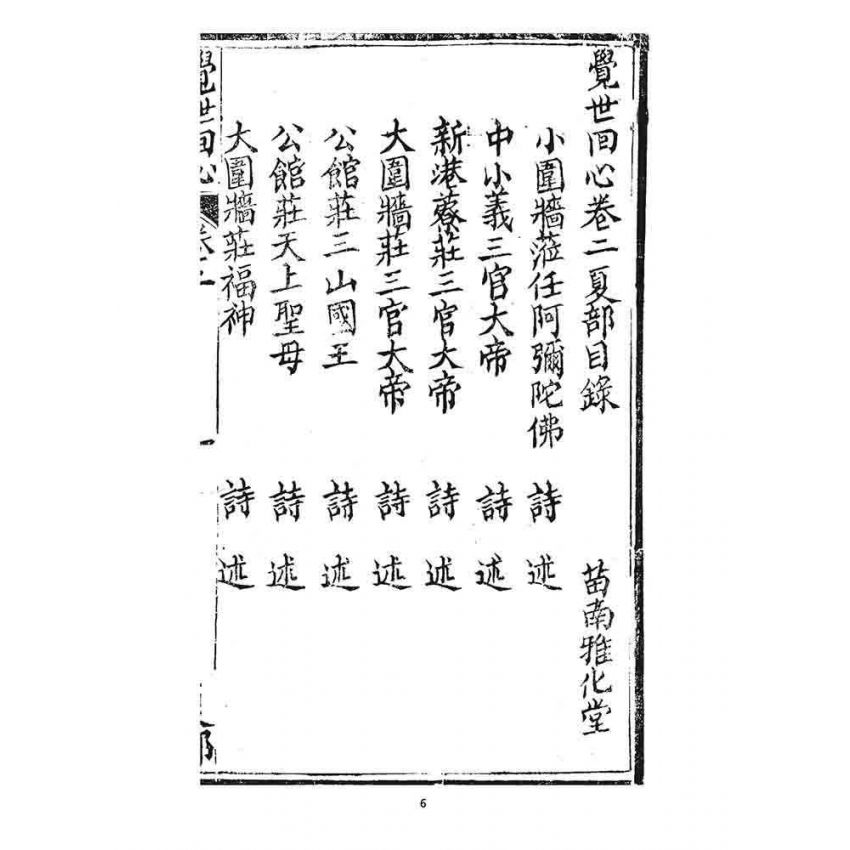 覺世回心卷二夏部目錄 苗南雅化堂
小圍牆蒞任阿彌陀佛 詩 述
中小義三官大帝 詩 述
新港藔莊三官大帝 詩 述
大圍牆莊三官大帝 詩 述
公館莊三山國王 詩 述
公館莊天上聖母 詩 述
大圍牆莊福神 詩 述
覺世回心 卷二 一
6